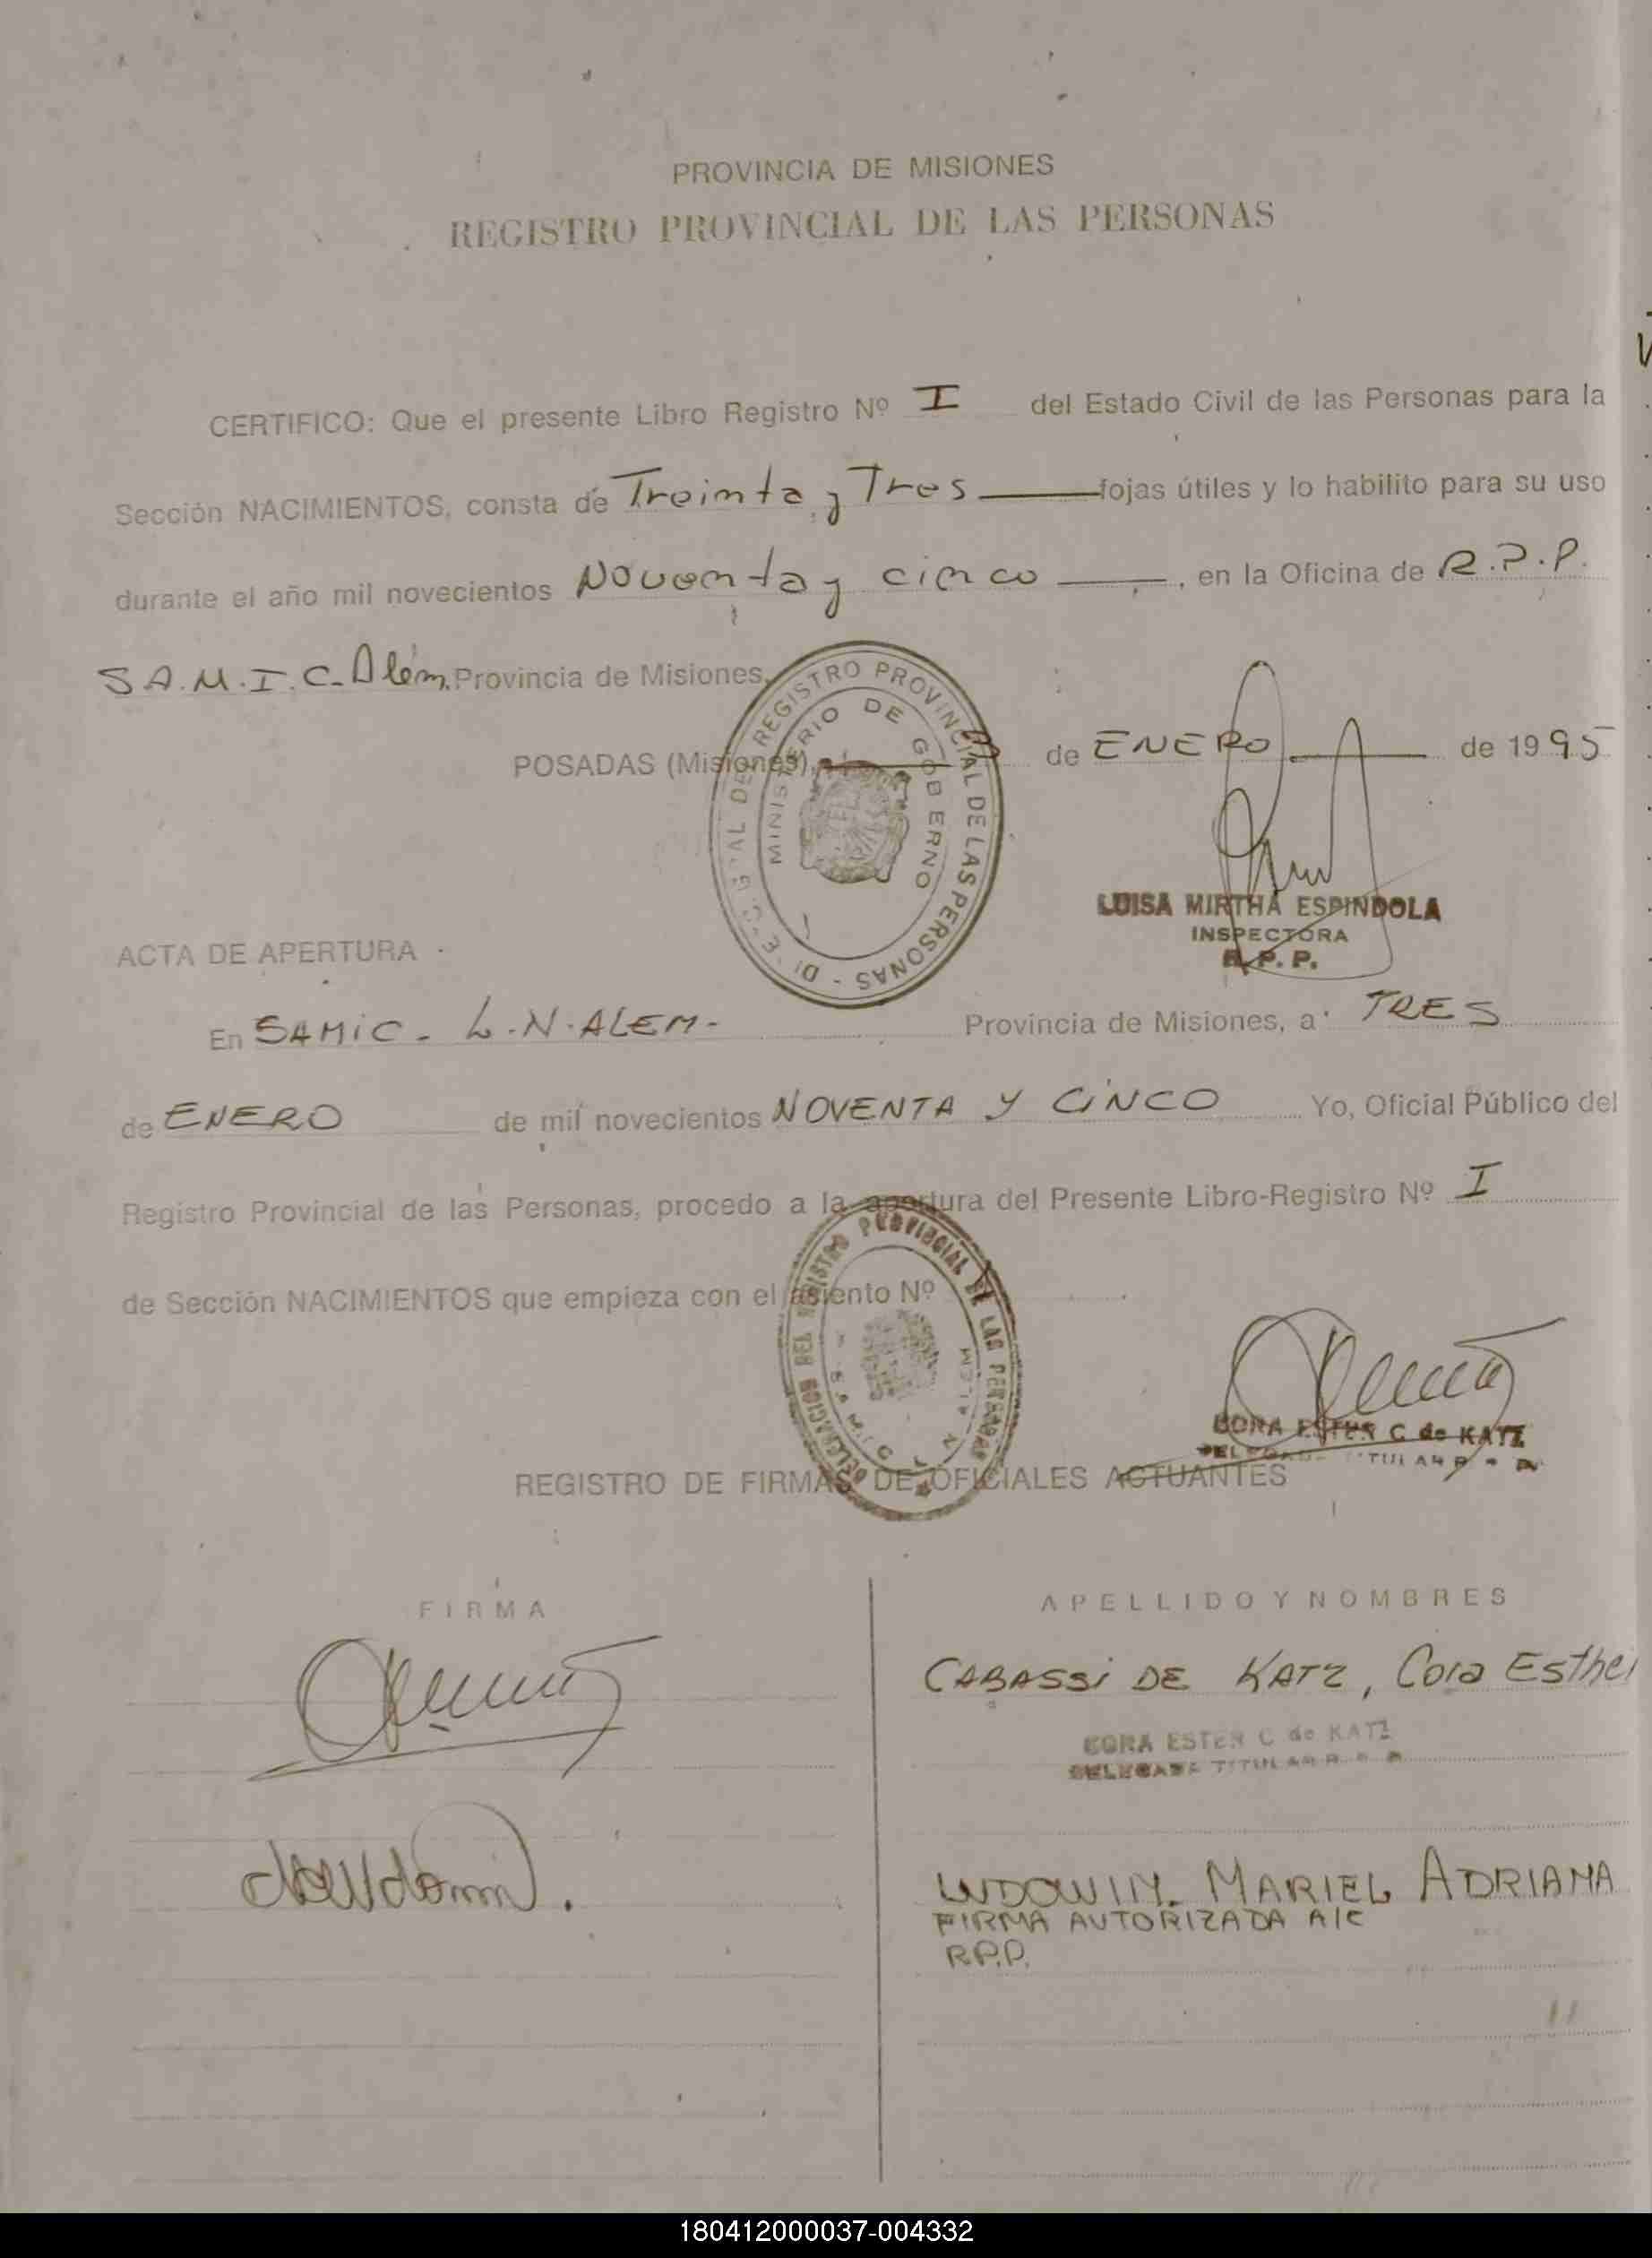 PROVINCIA DE MISIONES
REGISTRO PROVINCIAL DE LAS PERSONAS
CERTIFICO: Que el presente Libro Registro Nº I del Estado Civil de las Personas para la
Sección NACIMIENTOS, consta de Treinta y Tres fojas útiles y lo habilito para su uso
durante el año mil novecientos Noventa y cinco, en la Oficina de R.P.P.
S.A.M.I.C. Alem. Provincia de Misiones,
POSADAS (Misiones), de ENERO de 1995
REGISTRO PROVINCIAL DE LAS PERSONAS
MINISTERIO DE GOBIERNO
LUISA MIRTHA ESPINDOLA
INSPECTORA
R.P.P.
ACTA DE APERTURA
En SAMIC - L.N. ALEM - Provincia de Misiones, a TRES
de ENERO de mil novecientos NOVENTA Y CINCO Yo, Oficial Público del
Registro Provincial de las Personas, procedo a la apertura del Presente Libro-Registro Nº I
de Sección NACIMIENTOS que empieza con el asiento Nº
DELEGACION DEL REGISTRO PROVINCIAL DE LAS PERSONAS
CORA ESTER C de KATZ
REGISTRO DE FIRMAS DE OFICIALES ACTUANTES
FIRMA
APELLIDO Y NOMBRES
CABASSI DE KATZ, Cora Esther
CORA ESTER C de KATZ
DELEGADA TITULAR
MARIEL ADRIANA
FIRMA AUTORIZADA A/C
R.P.P.
180412000037-004332